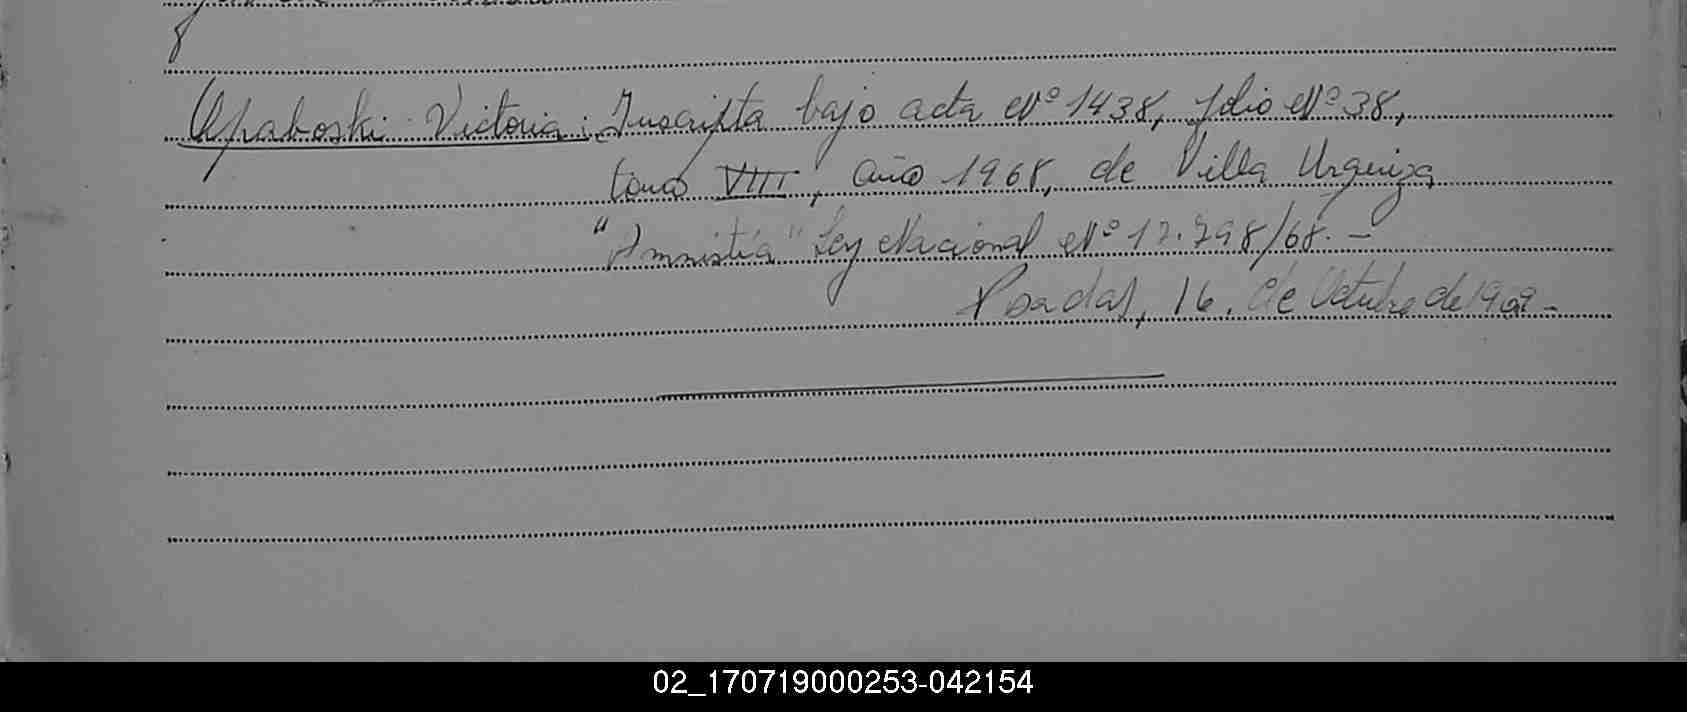 Opaboski Victoria: Inscripta bajo acta Nº 1438, folio Nº 38,
tomo VIII, año 1968, de Villa Urquiza
"Amnistía" Ley Nacional Nº 17.798/68.-
Posadas, 16. de Octubre de 1969-
02_170719000253-042154